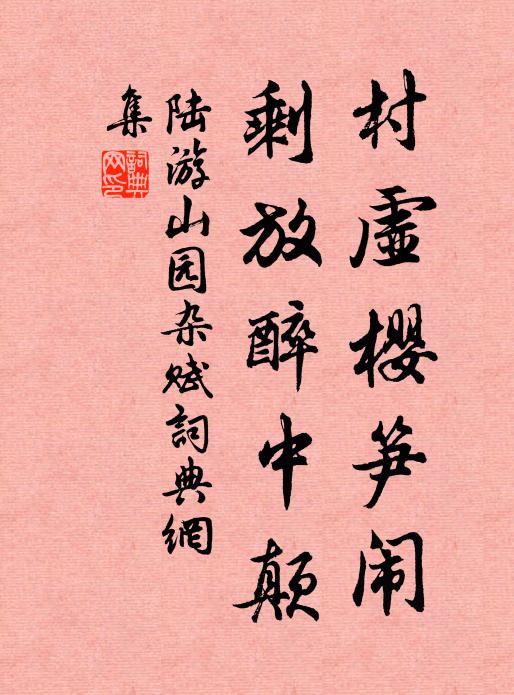 村虚樱笋闹
剩放醉中颠
陆游山园杂赋詞典網
集
詞典网印